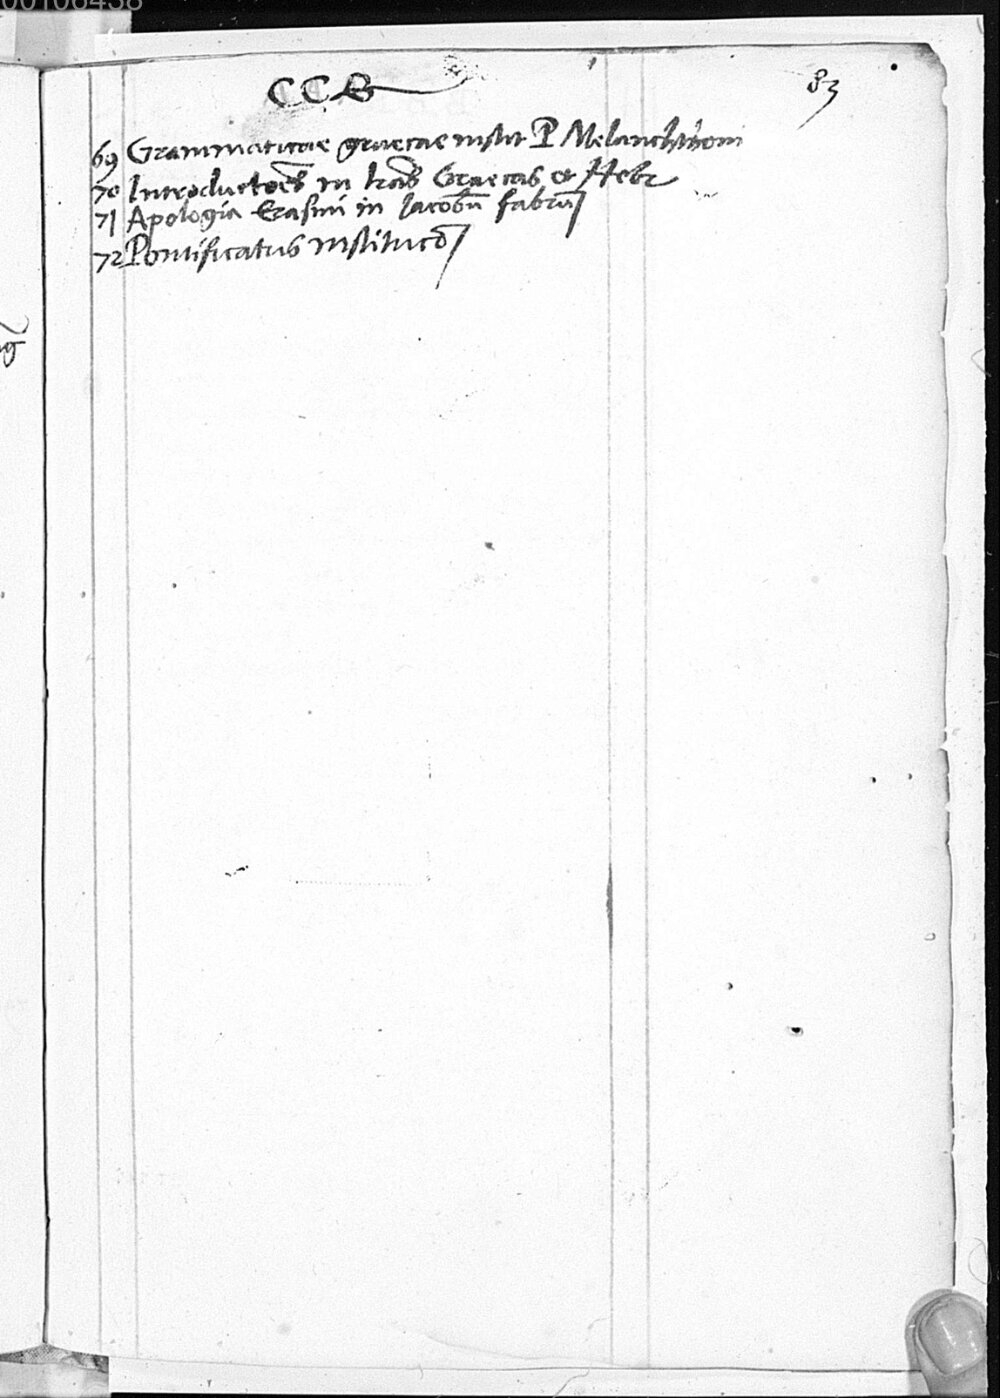 00106438
CCB
83
69 Grammaticae graecae instit P Melanchthoni
70 Introductoēs in lrās Graecas et Hebr
71 Apologia Erasmi in Iacobū fabrū
72 Pontificatus institucō